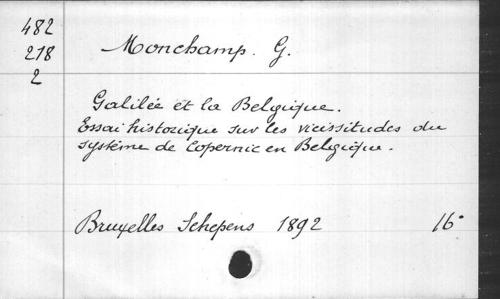 482
218
2
Monchamp. G.
Galilée et la Belgique.
Essai historique sur les vicissitudes du
système de Copernic en Belgique.
Bruxelles Schepens 1892 16°